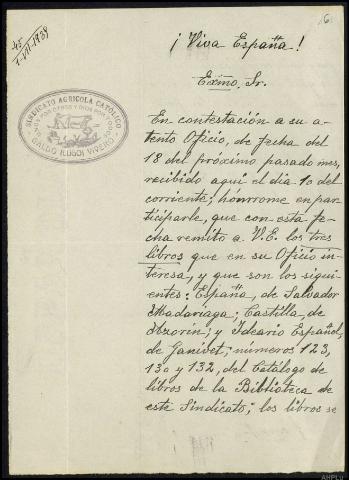 6
45
1-VII-1939
¡Viva España!
Exmo, Sr.
SINDICATO AGRICOLA CATÓLICO
UNOS POR OTROS Y DIOS POR TODOS
GALDO (LUGO) VIVERO
En contestación a su a-
tento Oficio, de fecha del
18 del próximo pasado mes,
recibido aquí el día 1o del
corriente; hónrrome en par-
ticiparle, que con esta fe-
cha remito a V.E. los tres
libros que en su Oficio in-
teresa, y que son los sigui-
entes: España, de Salvador
Madariaga; Castilla, de
Azorín; y Ideario Español,
de Ganivet; números 123,
130 y 132, del Catálogo de
libros de la Biblioteca de
este Sindicato; los libros se
AHPLu